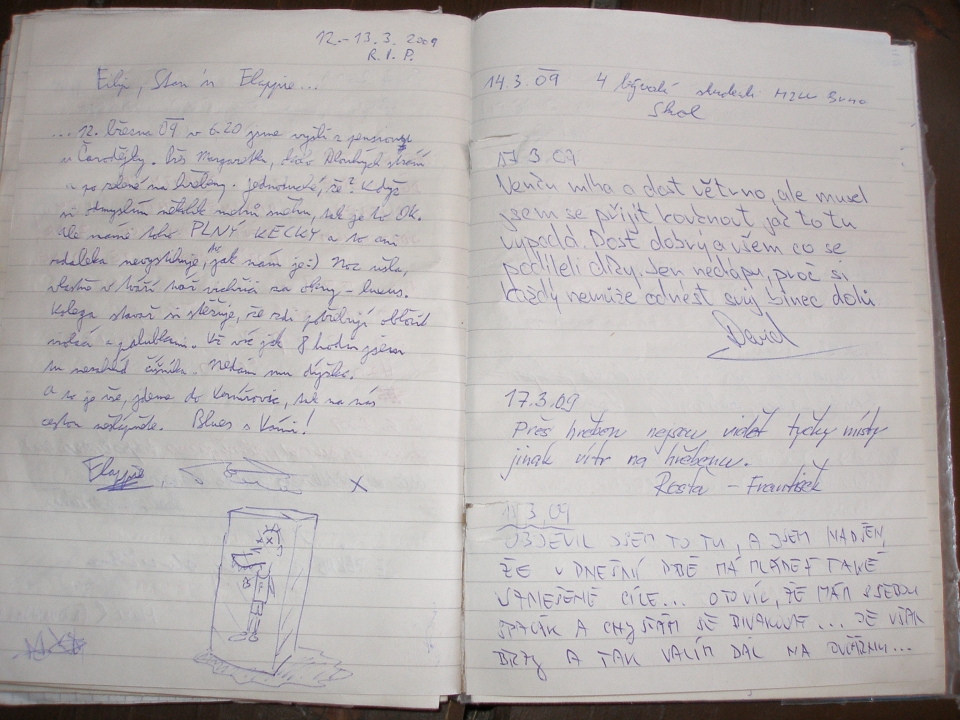 12.-13.3. 2009
R.I.P.
Filip, Stan a Flappie...
... 12. března 09 v 6.20 jsme vyšli z pensionu
u Čarodějky. Přes Margaretku, Dlouhých strání
a po zelené na hřebeny. jednoduché, že? Když
si odmyslím několik metrů sněhu, tak je to OK.
ale máme toho PLNÝ KECKY a to ani
zdaleka nevystihuje, jak nám je :) Noc ušla,
vlastně v noci za okny - luxus.
Kolega stavař si stěžuje, že zdi potřebují obložit
palubkami. Už víc jak 8 hodin jsem
tu neviděl číšníka. Nedám mu dýško.
A to je vše, jdeme do Ramzové, tak na nás
cestou nečekejte. Blues s Vámi!
Flappie, X
14.3.09 4 bývalí studenti MZLU Brno
Skol
17.3.09
Venku mlha a dost větrno, ale musel
jsem se přijít kouknout, jak to tu
vypadá. Dost dobrý a všem co se
podíleli díky. Jen nechápu, proč si
každý nemůže odnést svůj binec dolů
David
17.3.09
Přes hřeben nejsou vidět tyčky místy
jinak vítr na hřebenu.
Rosťa - František
18.3.09
OBJEVIL JSEM TO TU, A JSEM NADŠEN,
ŽE V DNEŠNÍ DOBĚ MÁ MLÁDEŽ TAKÉ
VZNEŠENÉ CÍLE... ŽE MÁM SEBOU
SPACÁK A CHYSTÁM SE BIVAKOVAT... JE VŠAK
BRZY A TAK VALÍM DÁL NA OVČÁRNU...